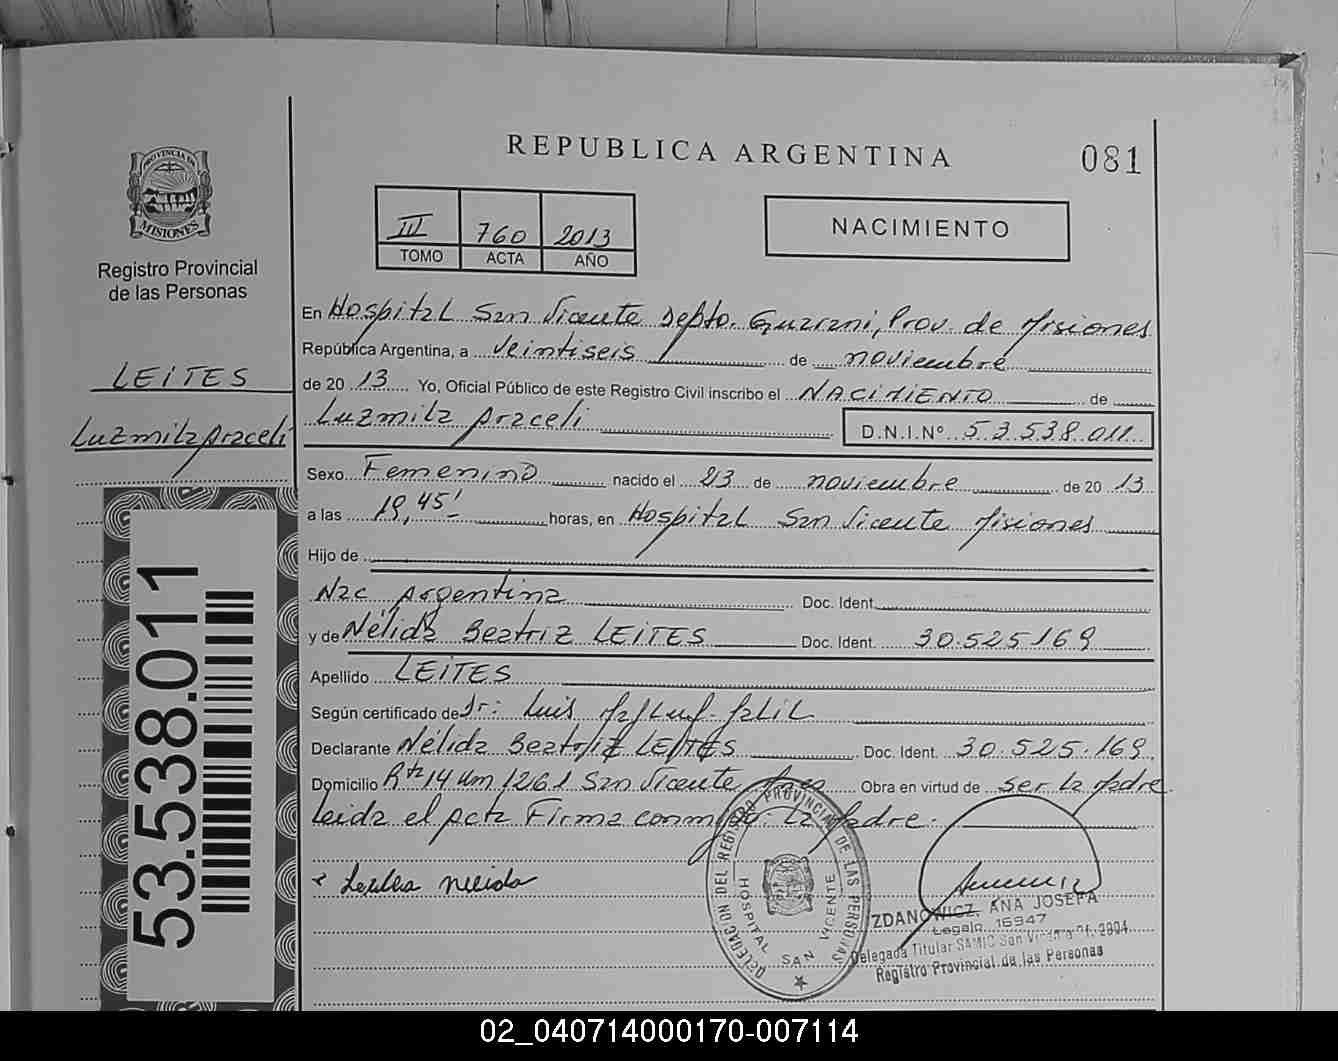 REPUBLICA ARGENTINA
081
PROVINCIA DE
MISIONES
Registro Provincial
de las Personas
III 760 2013
TOMO ACTA AÑO
NACIMIENTO
LEITES
Luzmila Araceli
En Hospital San Vicente Depto. Guarani, Prov de Misiones
República Argentina, a veintiseis de noviembre
de 20 13 Yo, Oficial Público de este Registro Civil inscribo el NACIMIENTO de
Luzmila Araceli D.N.I.Nº 53.538.011
Sexo Femenino nacido el 23 de noviembre de 20 13
a las 19,45' horas, en Hospital San Vicente Misiones
Hijo de
Nac Argentina Doc. Ident.
y de Nélida Beatriz LEITES Doc. Ident. 30.525.169
Apellido LEITES
Según certificado de Dr: Luis
Declarante Nélida Beatriz LEITES Doc. Ident. 30.525.169
Domicilio Rta 14 Km 1261 San Vicente Obra en virtud de ser la Madre
Leida el Acta Firma conmigo: La Madre.
Leites Nelida
53.538.011
DELEGACION DEL REGISTRO PROVINCIAL DE LAS PERSONAS
HOSPITAL SAN VICENTE
ZDANOWICZ, ANA JOSEFA
Legajo 16947
Delegada Titular SAMIC San Vicente
Registro Provincial de las Personas
02_040714000170-007114